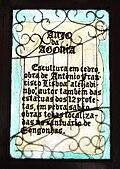 ANJO
da
AGONIA
Escultura em cedro,
obra de Antônio Fran-
cisco Lisboa "aleijadi-
nho", autor também das
estatuas dos 12 profe-
tas, em pedra sabão
obras todas localiza-
das no santuario de
Congonhas.